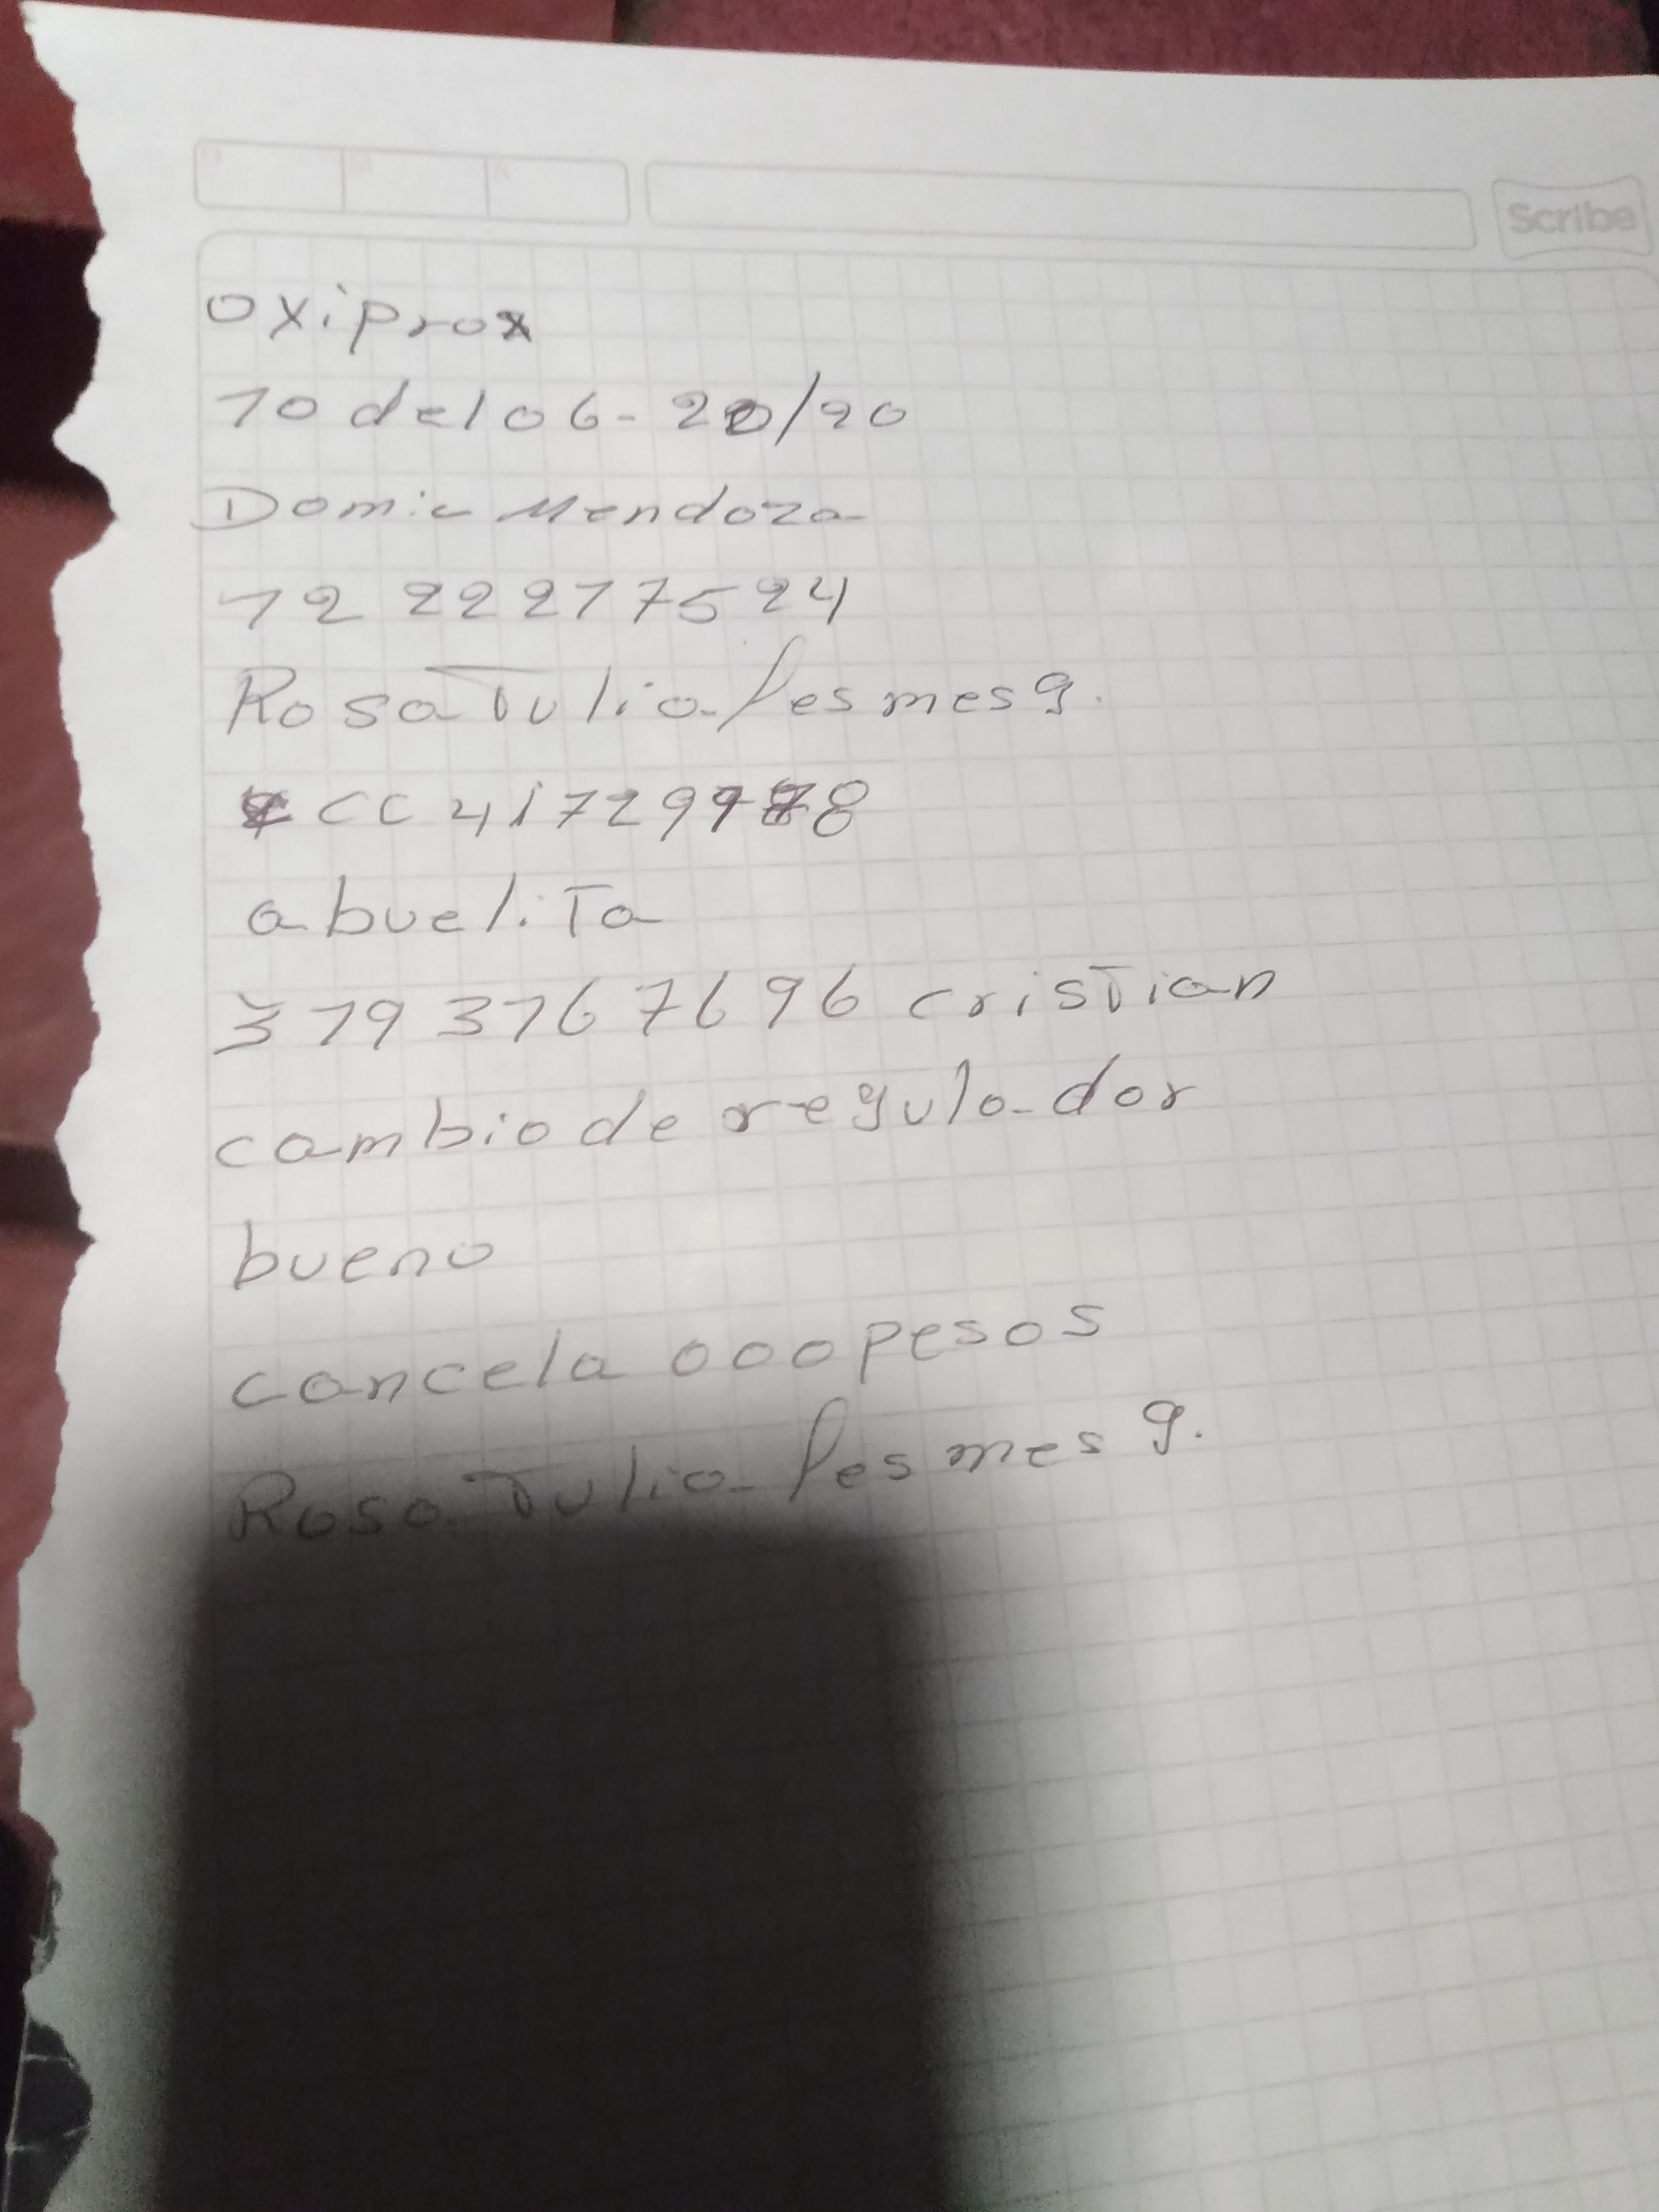 Scribe
oxiprox
10 del 06-20/20
Domic Mendoza
12 22217524
Rosa Tulia Lesmes g.
CC 41729978
abuelita
319 3167696 cristian
cambio de regulador
bueno
cancela 000 pesos
Rosa Tulia Lesmes g.